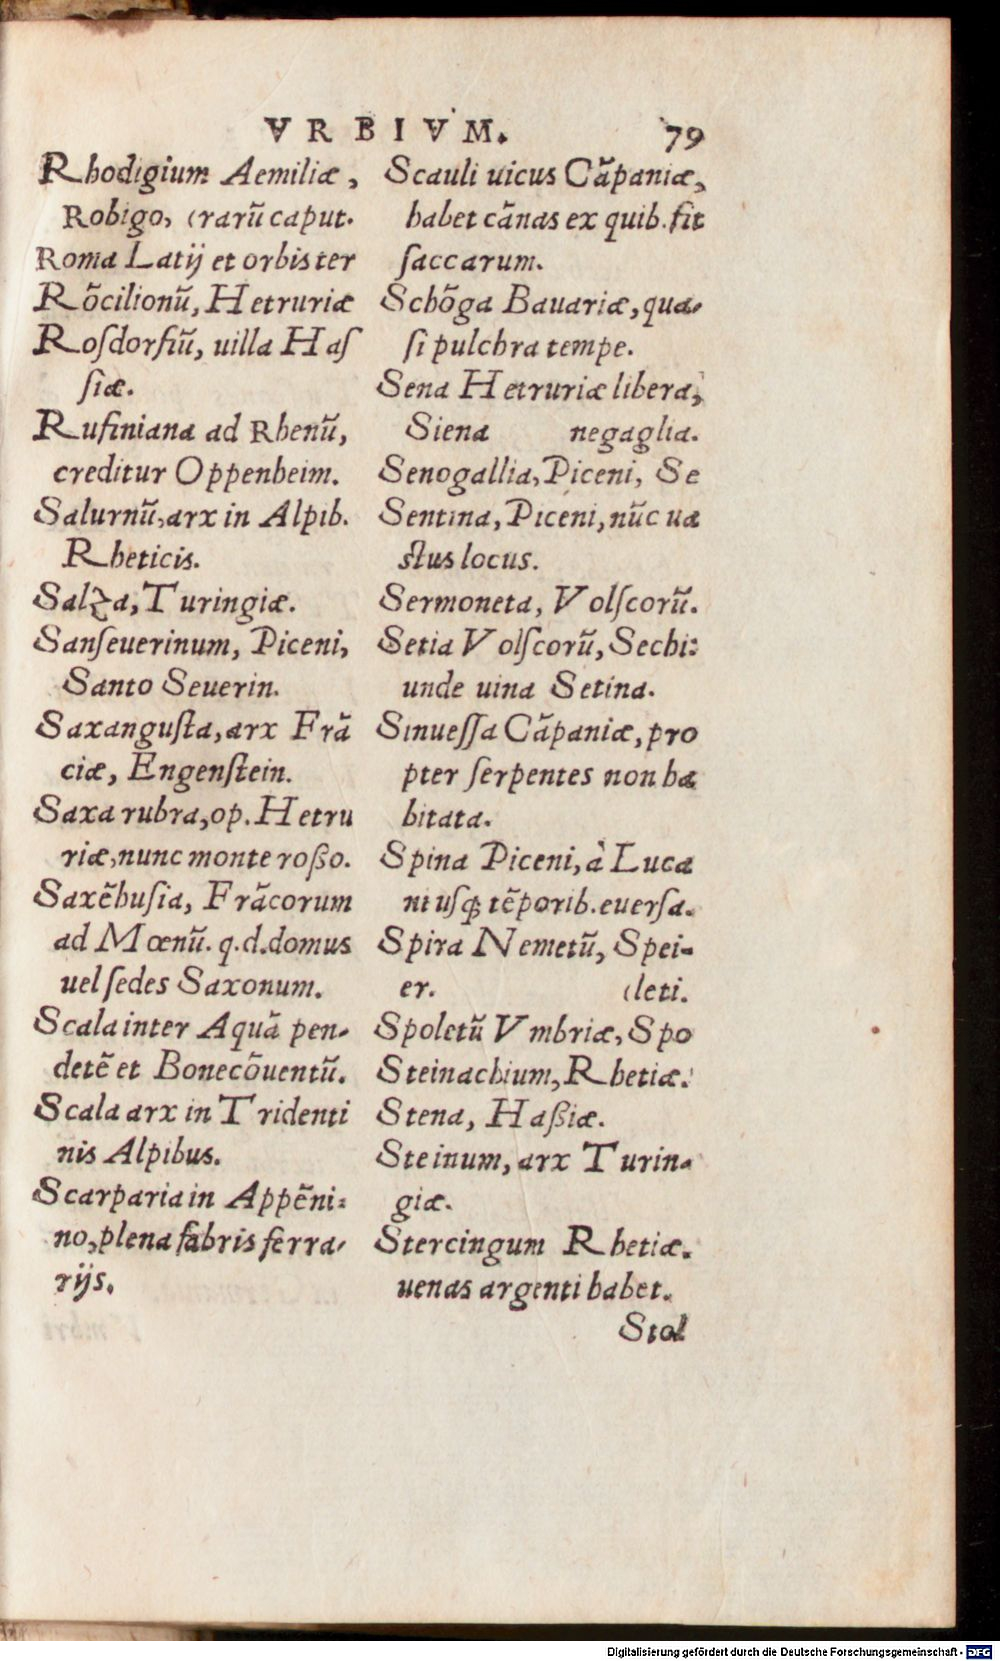 VRBIVM. 79
Rhodigium Aemiliæ,
Robigo, (rarū caput.
Roma Latij et orbis ter
Rōcilionū, Hetruriæ
Rosdorfiū, uilla Has
siæ.
Rufiniana ad Rhenū,
creditur Oppenheim.
Salurnū, arx in Alpib.
Rheticis.
Salza, Turingiæ.
Sanseuerinum, Piceni,
Santo Seuerin.
Saxangusta, arx Frā
ciæ, Engenstein.
Saxa rubra, op. Hetru
riæ, nunc monte roßo.
Saxēhusia, Frācorum
ad Mœnū. q.d. domus
uel sedes Saxonum.
Scala inter Aquā pen-
detē et Bonecōuentū.
Scala arx in Tridenti
nis Alpibus.
Scarparia in Appēni-
no, plena fabris ferra-
rijs.
Scauli uicus Cāpaniæ,
habet cānas ex quib. fit
saccarum.
Schōga Bauariæ, qua-
si pulchra tempe.
Sena Hetruriæ libera,
Siena negaglia.
Senogallia, Piceni, Se
Sentina, Piceni, nūc ua
stus locus.
Sermoneta, Volscorū.
Setia Volscorū, Sechi:
unde uina Setina.
Sinuessa Cāpaniæ, pro
pter serpentes non ha
bitata.
Spina Piceni, à Luca
ni usq̃ tēporib. euersa.
Spira Nemetū, Spei-
er. (leti.
Spoletū Vmbriæ, Spo
Steinachium, Rhetiæ.
Stena, Haßiæ.
Steinum, arx Turin-
giæ.
Stercingum Rhetiæ.
uenas argenti habet.
Stol
Digitalisierung gefördert durch die Deutsche Forschungsgemeinschaft - DFG